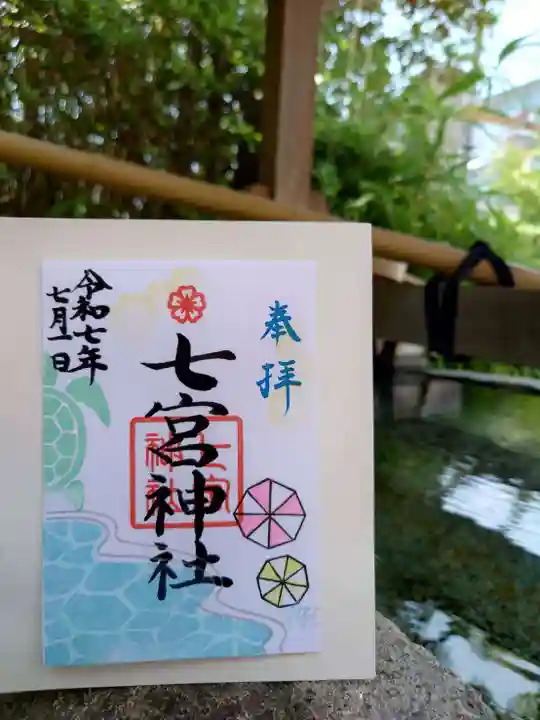 奉拝
七宮神社
七宮
神社
令和七年
七月一日